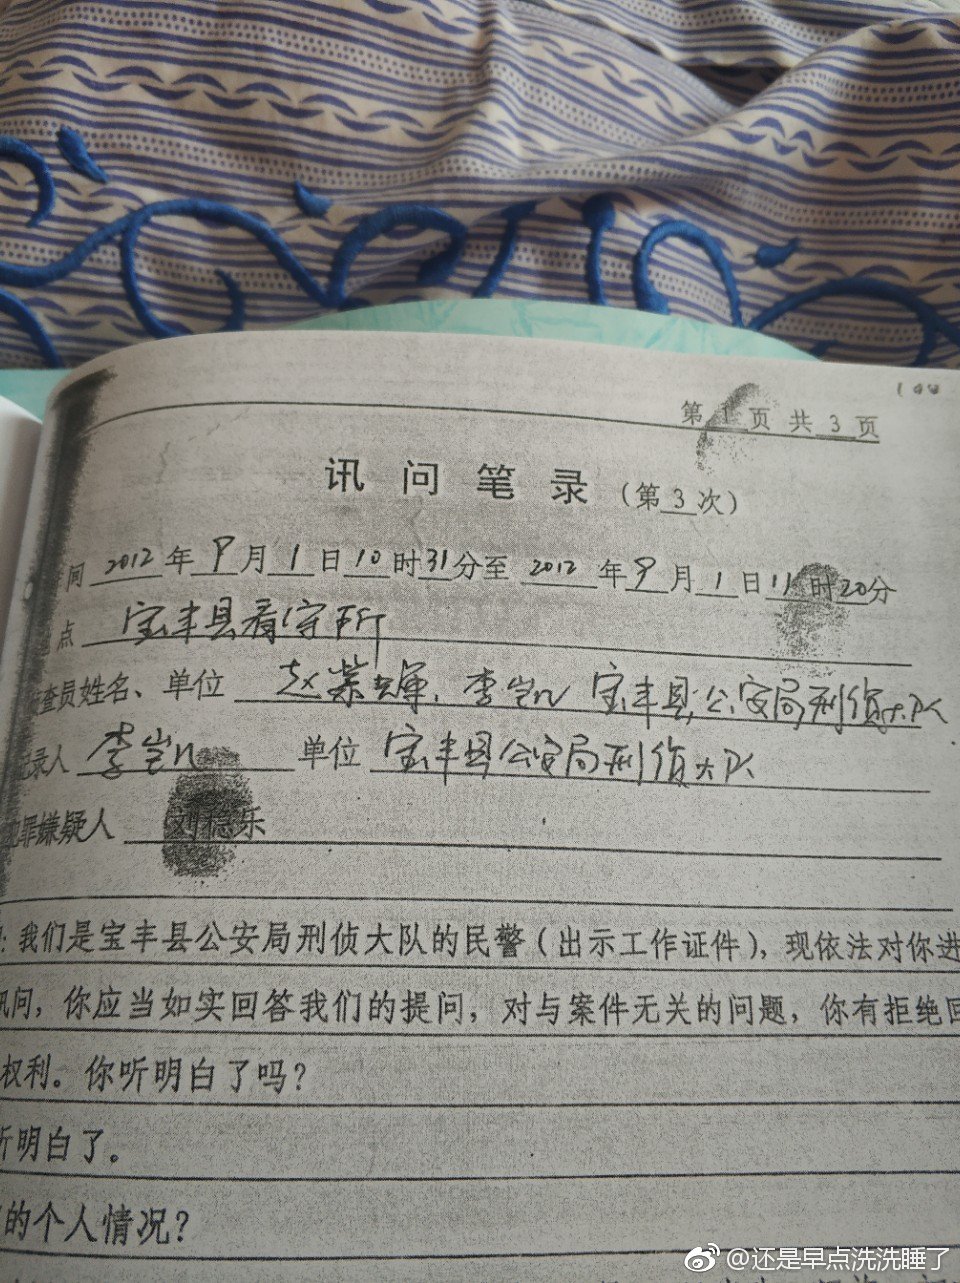 第 1 页 共 3 页
讯 问 笔 录 (第 3 次)
间 2012 年 9 月 1 日 10 时 31 分至 2012 年 9 月 1 日 11 时 20 分
点 宝丰县看守所
查员姓名、单位 李岂凡 宝丰县公安局刑侦大队
记录人 李岂凡 单位 宝丰县公安局刑侦大队
犯罪嫌疑人 刘稳乐
: 我们是宝丰县公安局刑侦大队的民警(出示工作证件),现依法对你进
讯问,你应当如实回答我们的提问,对与案件无关的问题,你有拒绝回
权利。你听明白了吗?
听明白了。
的个人情况?
@还是早点洗洗睡了